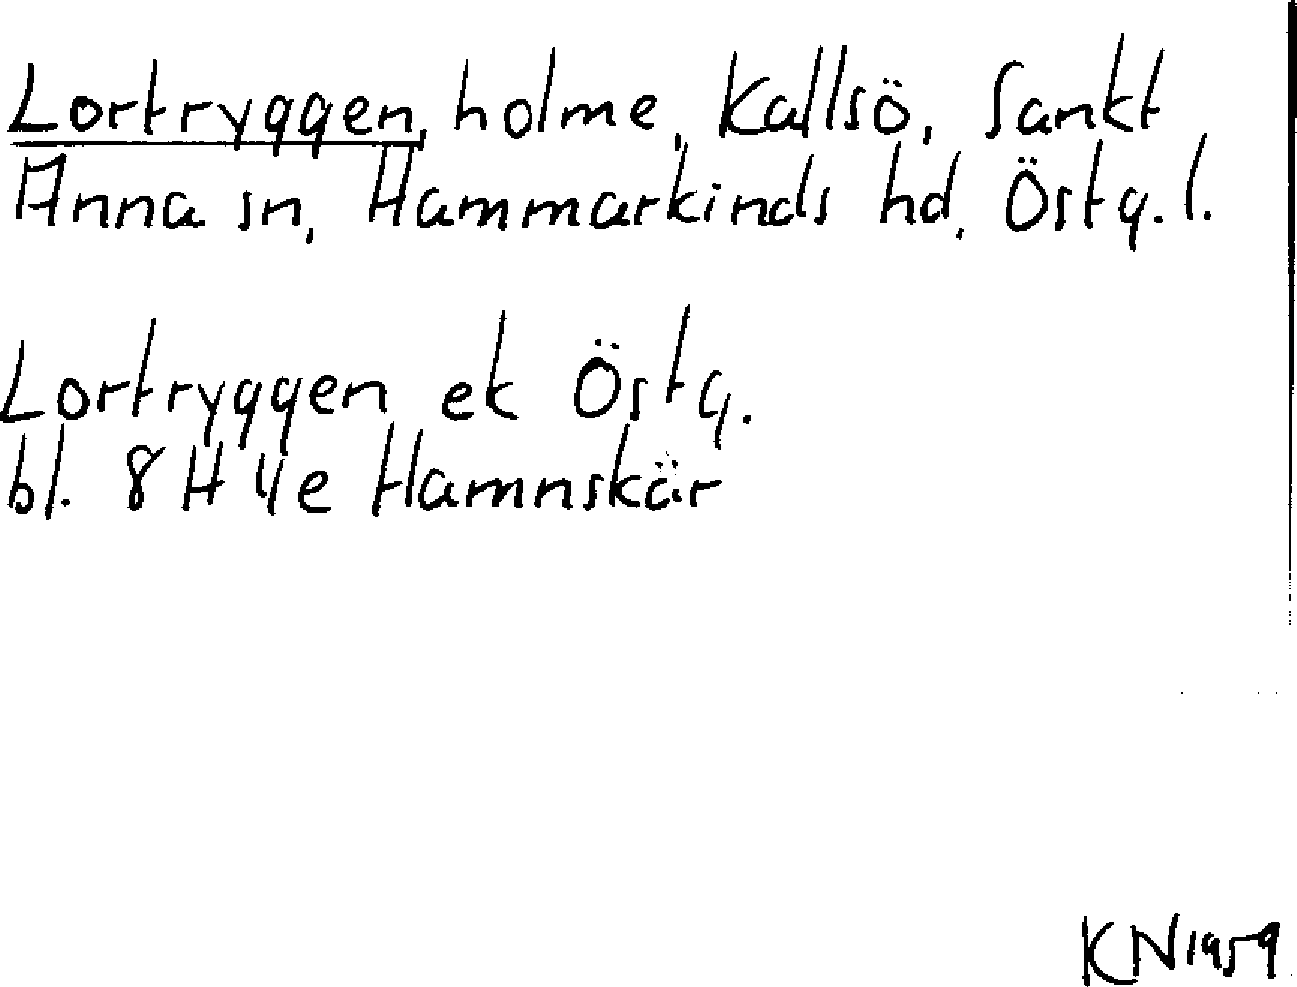 Lortryggen, holme, Kallsö, Sankt
Anna sn, Hammarkinds hd, Östg. l.
Lortryggen ek Östg.
bl. 8 H 4e Hamnskär
KN 1959